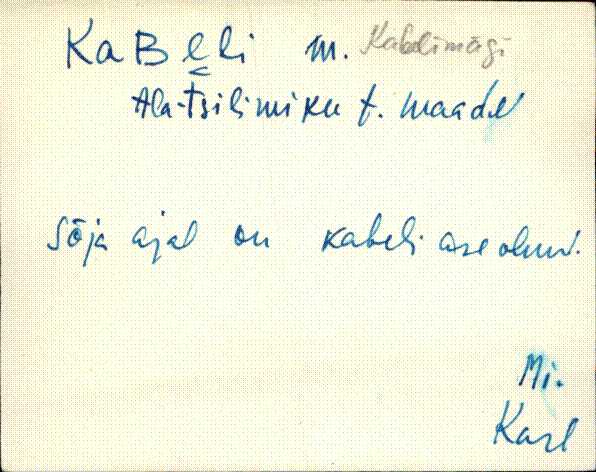 KaBeli m. Kabelimägi
Ala-Tsilimiku t. maadel
Sõja ajal on kabeli ase olnud.
Mi.
Karl